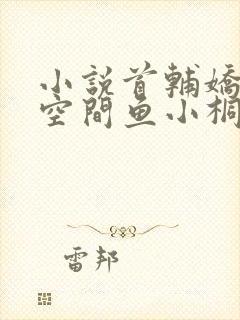 小說首輔嬌
空間魚小桐
雷邦